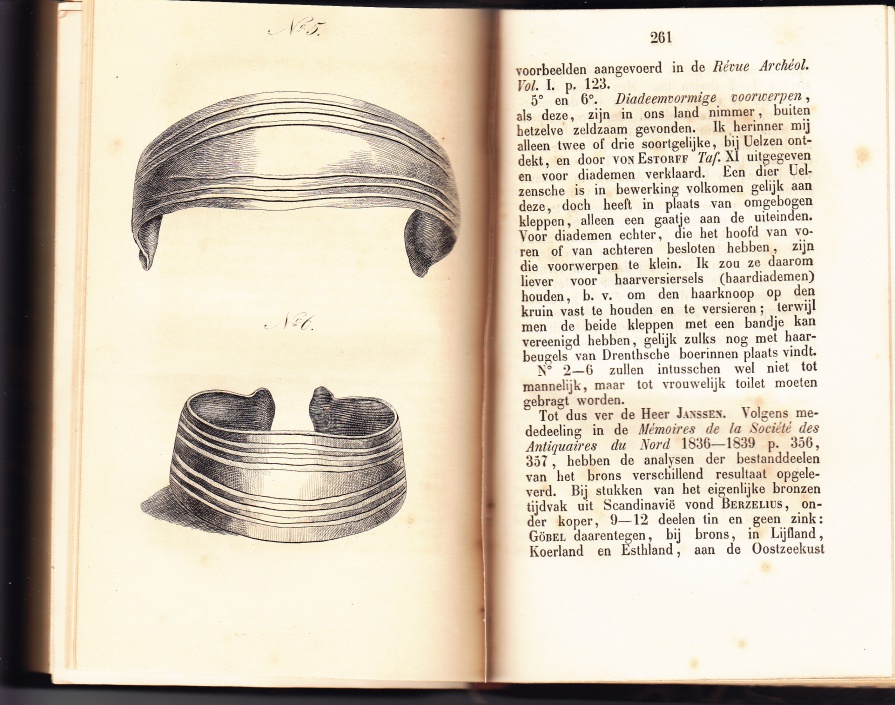 Nº 5.
Nº 6.
261
voorbeelden aangevoerd in de Révue Archéol.
Vol. I. p. 123.
5° en 6°. Diadeemvormige voorwerpen,
als deze, zijn in ons land nimmer, buiten
hetzelve zeldzaam gevonden. Ik herinner mij
alleen twee of drie soortgelijke, bij Uelzen ont-
dekt, en door VON ESTORFF Taf. XI uitgegeven
en voor diademen verklaard. Een dier Uel-
zensche is in bewerking volkomen gelijk aan
deze, doch heeft in plaats van omgebogen
kleppen, alleen een gaatje aan de uiteinden.
Voor diademen echter, die het hoofd van vo-
ren of van achteren besloten hebben, zijn
die voorwerpen te klein. Ik zou ze daarom
liever voor haarversiersels (haardiademen)
houden, b. v. om den haarknoop op den
kruin vast te houden en te versieren; terwijl
men de beide kleppen met een bandje kan
vereenigd hebben, gelijk zulks nog met haar-
beugels van Drenthsche boerinnen plaats vindt.
N° 2—6 zullen intusschen wel niet tot
mannelijk, maar tot vrouwelijk toilet moeten
gebragt worden.
Tot dus ver de Heer JANSSEN. Volgens me-
dedeeling in de Mémoires de la Société des
Antiquaires du Nord 1836—1839 p. 356,
357, hebben de analysen der bestanddeelen
van het brons verschillend resultaat opgele-
verd. Bij stukken van het eigenlijke bronzen
tijdvak uit Scandinavië vond BERZELIUS, on-
der koper, 9—12 deelen tin en geen zink:
GÖBEL daarentegen, bij brons, in Lijfland,
Koerland en Esthland, aan de Oostzeekust